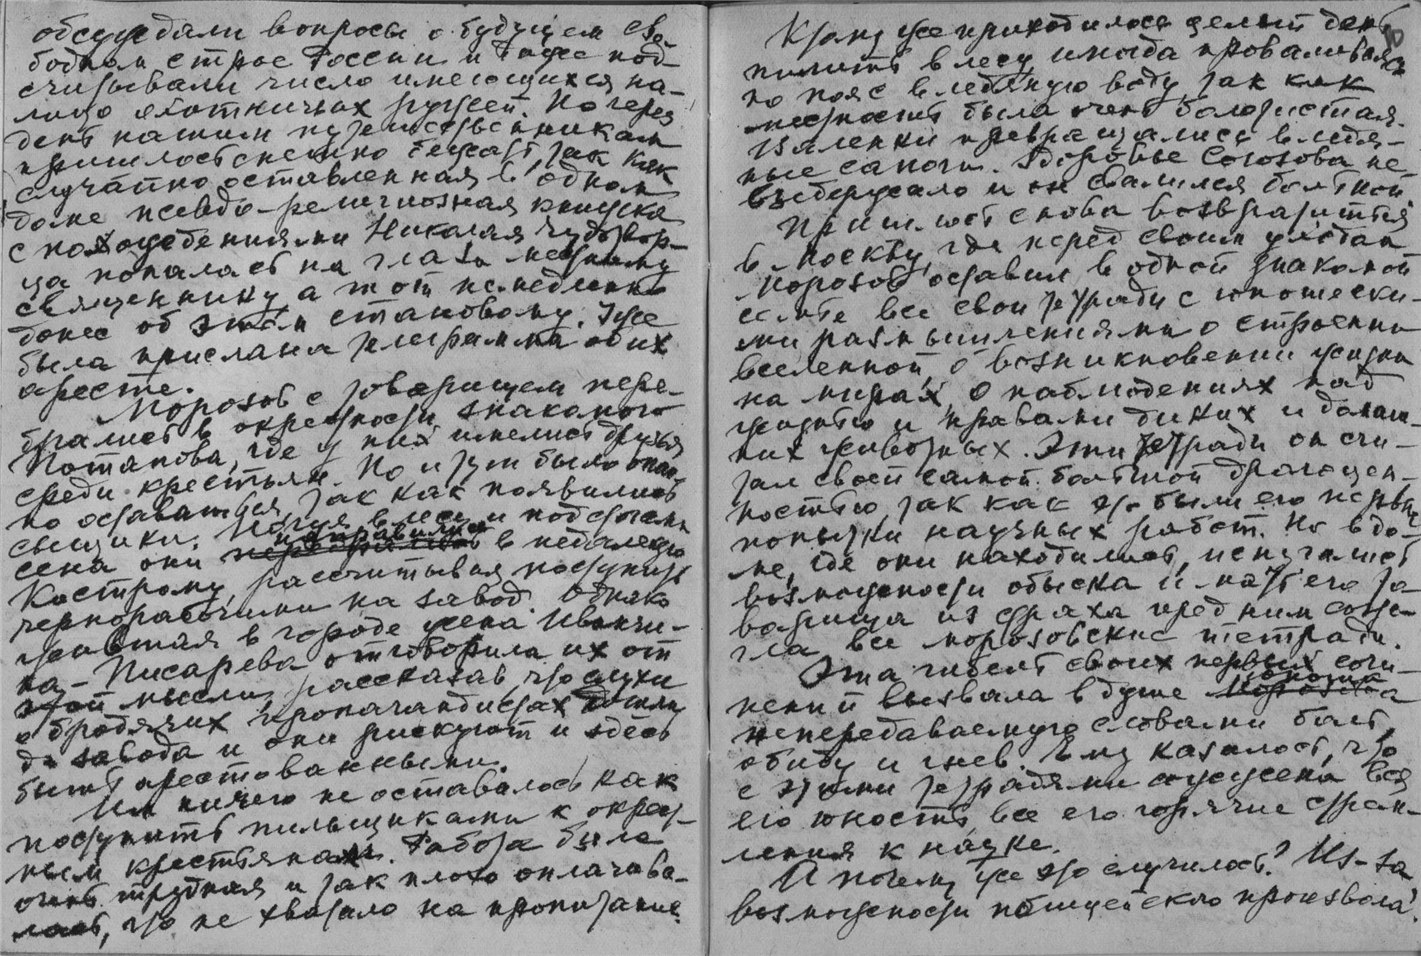 обсуждали вопросы о будущем сво-
бодном строе России и даже под-
считывали число имеющихся на-
лицо охотничьих ружей. Но через
день нашим путешественникам
пришлось спешно бежать, так как
случайно оставленная в одном
доме псевдо-религиозная книжка
с похождениями Николая Чудотвор-
ца попалась на глаза местному
священнику, а тот немедленно
донес об этом становому. Уже
была прислана телеграмма об их
аресте.
Морозов с товарищем пере-
брались в окрестности знакомого
Потапова, где у них имелись друзья
среди крестьян. Но и тут было опас-
но оставаться, так как появились
сыщики. Ночуя в лесу и под стогами
сена они направились в недалекую
Кострому, рассчитывая поступить
чернорабочими на завод. Однако
жившая в городе жена Иванчи-
на-Писарева отговорила их от
этой мысли, рассказав, что слухи
о бродячих пропагандистах дошли
до завода и они рискуют и здесь
быть арестованными.
Им ничего не оставалось как
поступить пильщиками к окрест-
ным крестьянам. Работа была
очень трудная и так плохо оплачива-
лась, что не хватало на пропитание.
80
К тому же приходилось целый день
пилить в лесу, иногда проваливаясь
по пояс в ледяную воду, так как
местность была очень болотистая.
Валенки превращались в ледя-
ные сапоги. Здоровье Союзова не
выдержало и он свалился больной.
Пришлось снова возвратиться
в Москву, где перед своим уходом
Морозов оставил в одной знакомой
семье все свои тетради с юношески-
ми размышлениями о строении
вселенной, о возникновении жизни
на мирах, о наблюдениях над
жизнью и нравами диких и домаш-
них животных. Эти тетради он счи-
тал своей самой большой драгоцен-
ностью, так как это были его первые
попытки научных работ. Но в до-
ме, где они находились, испугались
возможности обыска и мать его то-
варища из страха пред ним сож-
гла все морозовские тетради.
Эта гибель своих первых сочи-
нений вызвала в душе юноши
непередаваемую словами боль,
обиду и гнев. Ему казалось, что
с этими тетрадями сожжена вся
его юность, все его горячие стрем-
ления к науке.
И почему же это случилось? Из-за
возможности полицейского произвола!